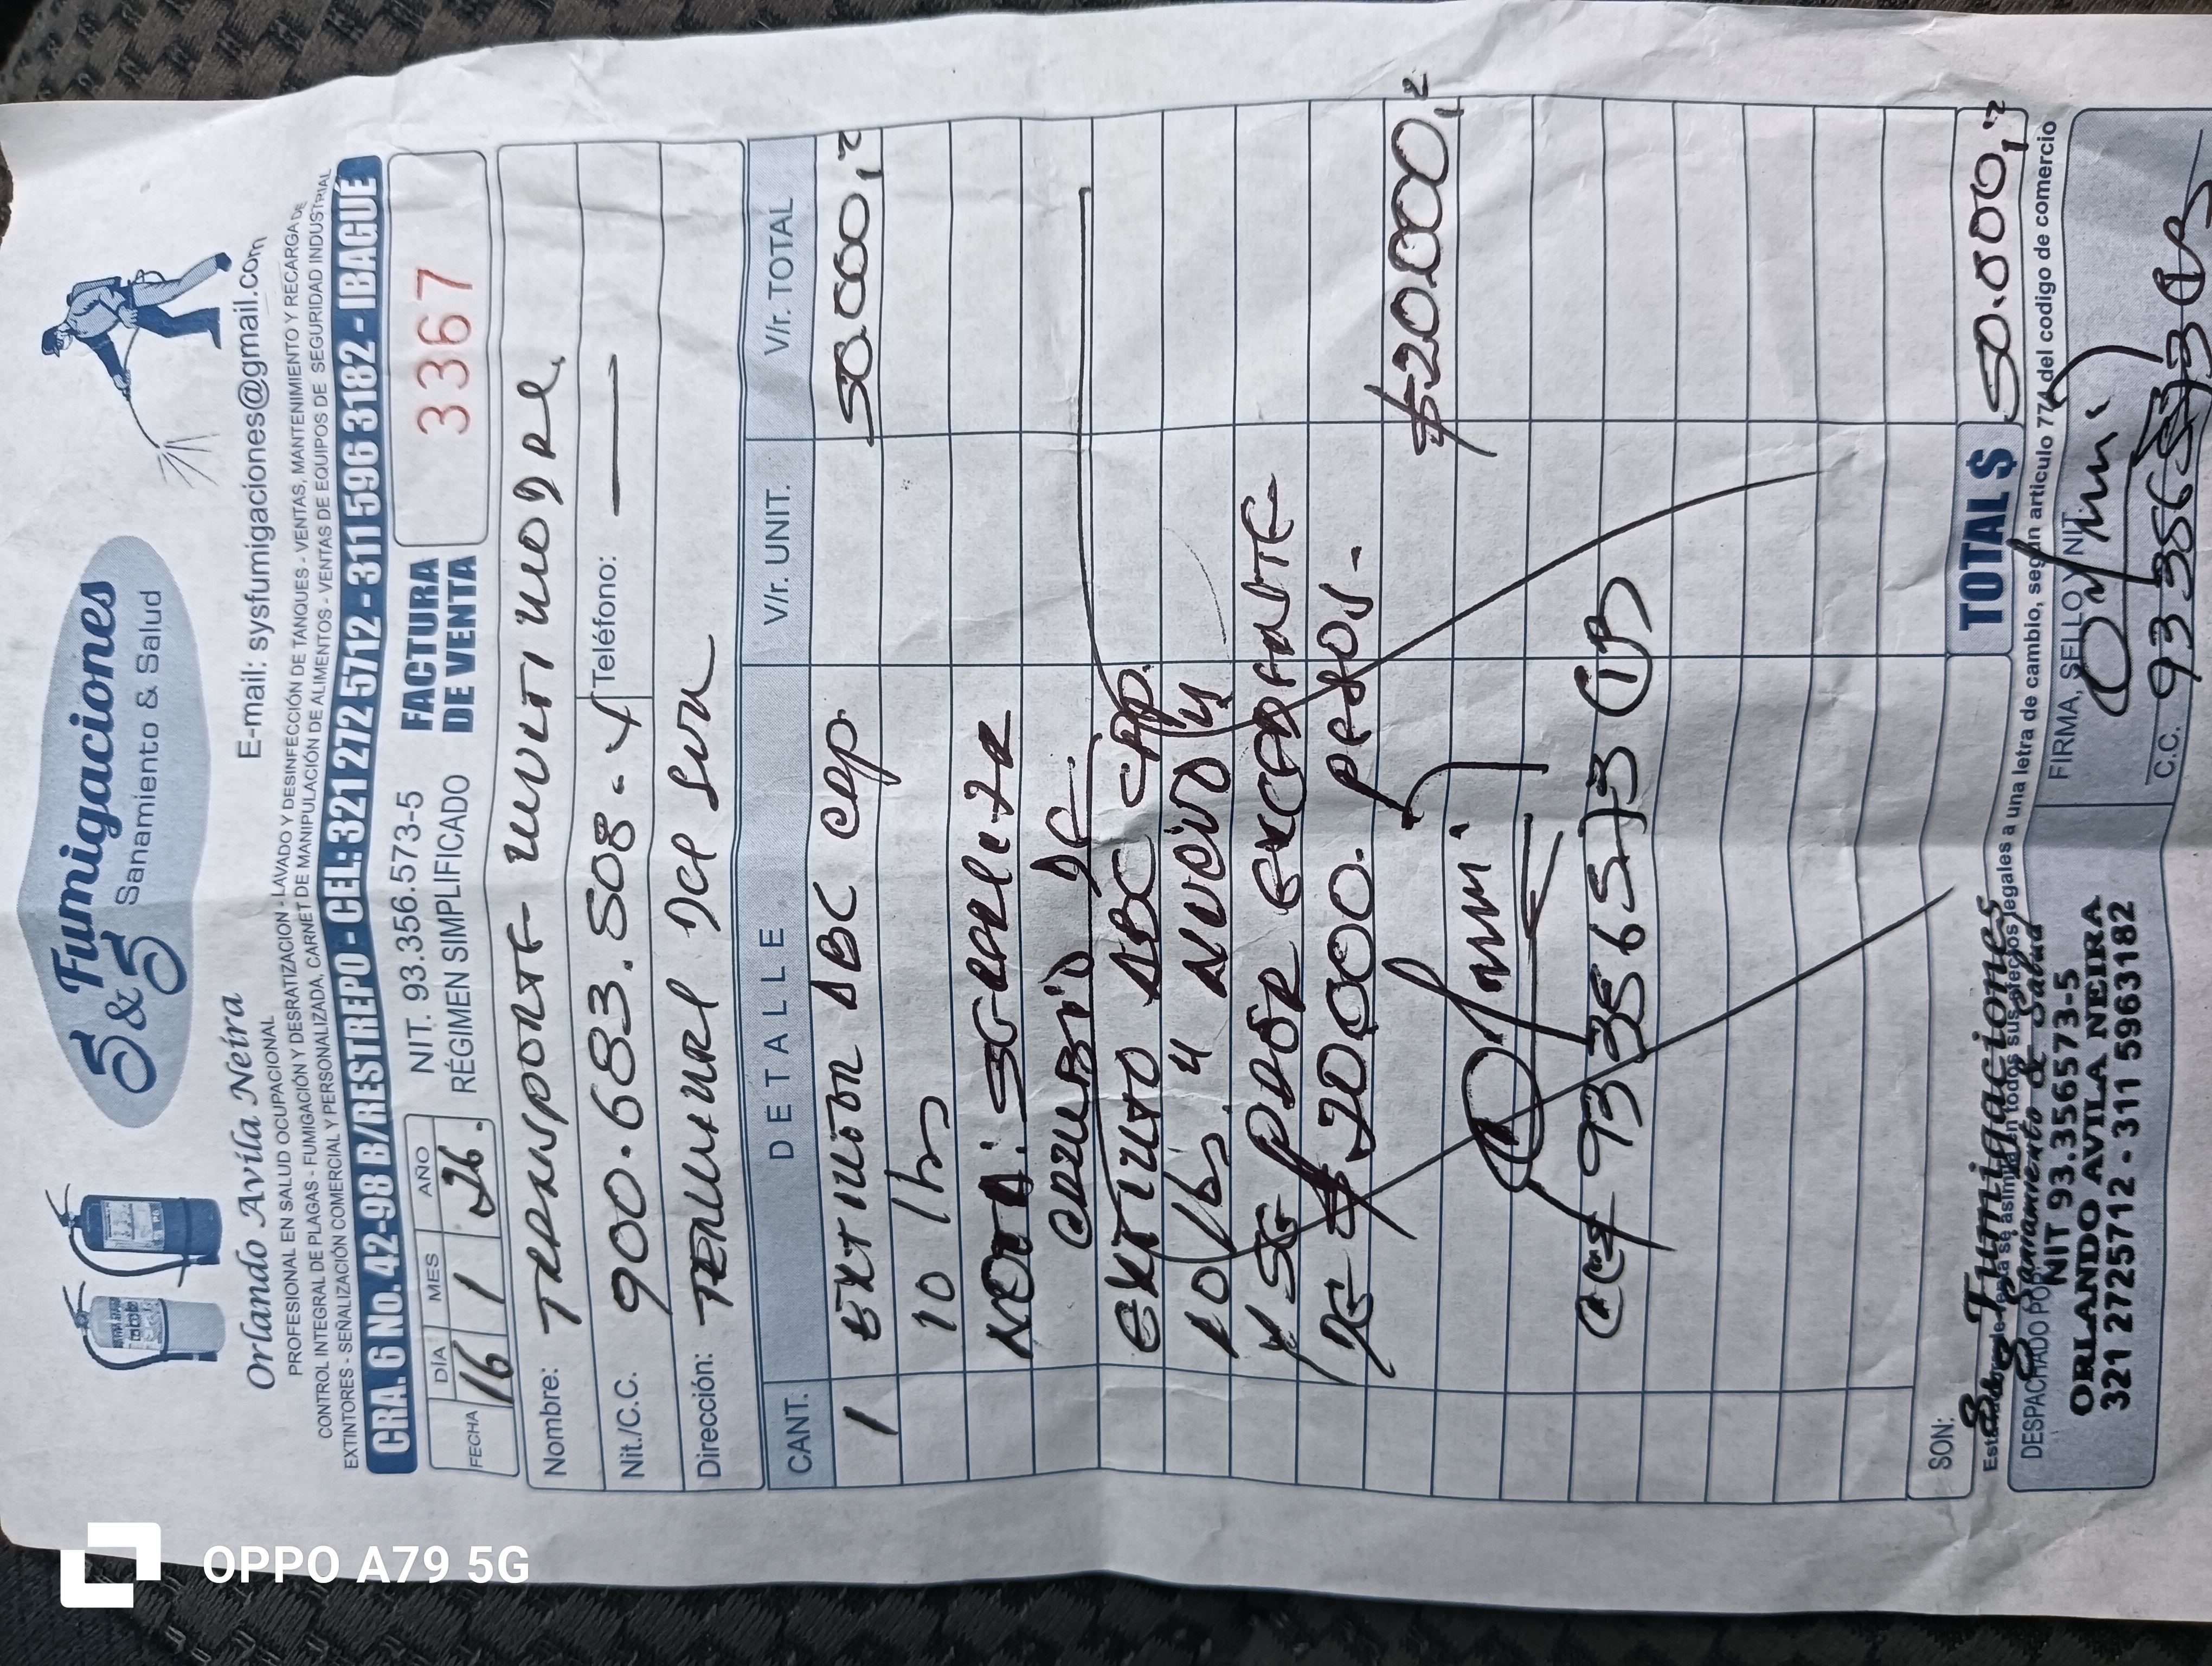 S&S Fumigaciones
Sanamiento & Salud
Orlando Avila Neira
E-mail: sysfumigaciones@gmail.com
PROFESIONAL EN SALUD OCUPACIONAL
CONTROL INTEGRAL DE PLAGAS - FUMIGACIÓN Y DESRATIZACION - LAVADO Y DESINFECCIÓN DE TANQUES - VENTAS, MANTENIMIENTO Y RECARGA DE
EXTINTORES - SEÑALIZACIÓN COMERCIAL Y PERSONALIZADA, CARNET DE MANIPULACIÓN DE ALIMENTOS - VENTAS DE EQUIPOS DE SEGURIDAD INDUSTRIAL
CRA. 6 No. 42-98 B/RESTREPO - CEL: 321 272 5712 - 311 596 3182 - IBAGUÉ
FECHA DÍA MES AÑO
16 1 26.
NIT. 93.356.573-5
RÉGIMEN SIMPLIFICADO
FACTURA
DE VENTA
3367
Nombre: TRANSPORTE
Nit./C.C. 900.683.508-4 Teléfono: —
Dirección: TERMINAL del sur
CANT. DETALLE V/r. UNIT. V/r. TOTAL
1 EXTINTOR ABC cap 50.000,
10 lbs
NOTA: SE REALIZA
CAMBIO DE
ABC CAP.
10 lbs
Y SE EXCEDENTE
DE $ 20000. PESOS. -
$ 20.000,
CC# 93356573 IB
SON:
TOTAL $ 50.000,
Esta se asimila en todos sus efectos legales a una letra de cambio, según articulo 774 del codigo de comercio
DESPACHADO POR:
S&S Fumigaciones
Sanamiento & Salud
NIT 93.356573-5
ORLANDO AVILA NEIRA
321 2725712 - 311 5963182
FIRMA, SELLO Y NIT
C.C. 93356573 IB
OPPO A79 5G